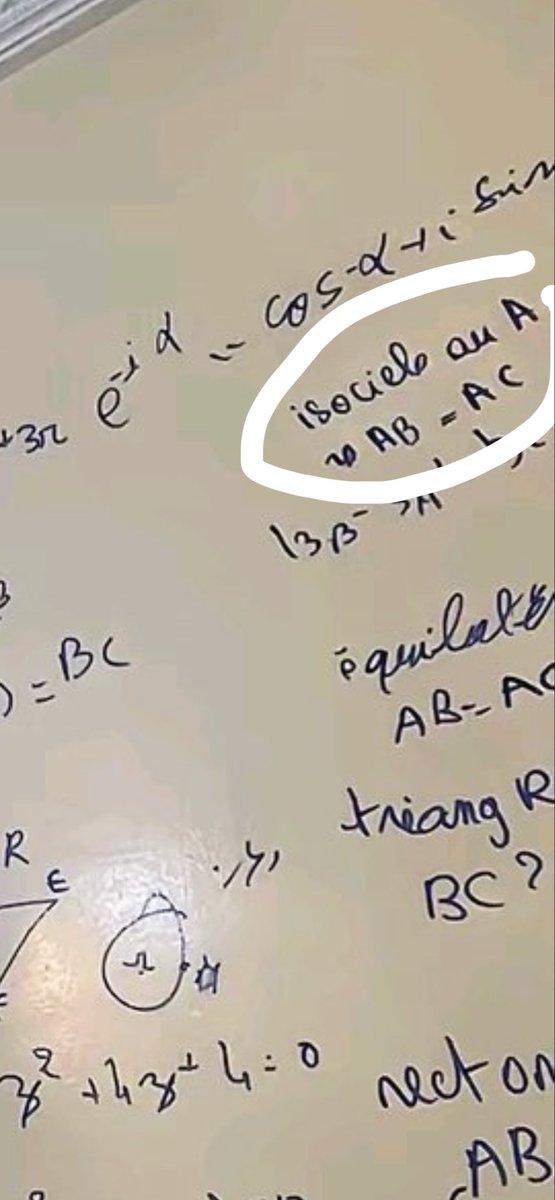 e^-iα = cos-α+i sin
+3π
isociele au A
AB = AC
) = BC
équilaté
AB = AC
triang R
BC?
R
E
Ω
z² + 4z + 4 = 0
rect en
AB